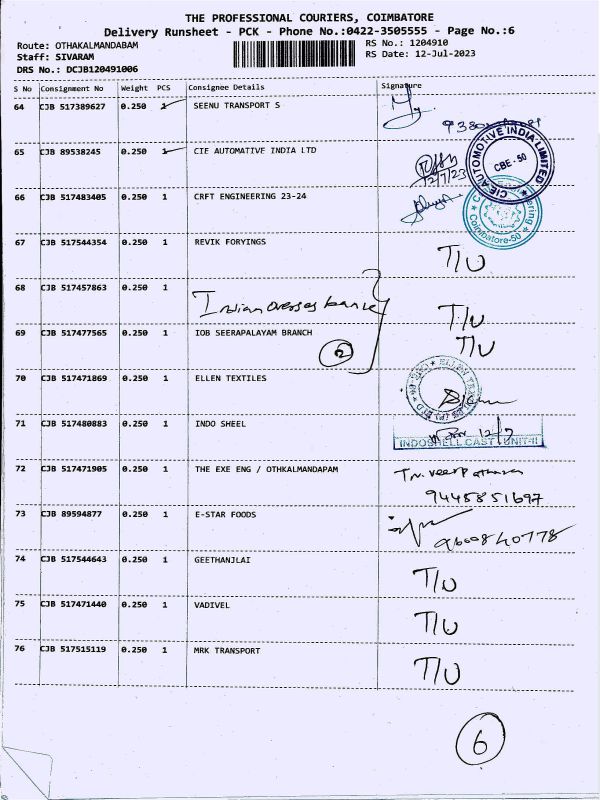 THE PROFESSIONAL COURIERS, COIMBATORE
Delivery Runsheet - PCK - Phone No.:0422-3505555 - Page No.:6
Route: OTHAKALMANDABAM
RS No.: 1204910
Staff: SIVARAM
RS Date: 12-Jul-2023
DRS No.: DCJB120491006
S No Consignment No Weight PCS Consignee Details Signature
64 CJB 517389627 0.250 1 SEENU TRANSPORT S
65 CJB 89538245 0.250 1 CIE AUTOMATIVE INDIA LTD
12/7/23
CIE AUTOMOTIVE INDIA LIMITED
CBE-50
66 CJB 517483405 0.250 1 CRFT ENGINEERING 23-24
Coimbatore-50
67 CJB 517544354 0.250 1 REVIK FORYINGS T/U
68 CJB 517457863 0.250 1 Indian overses banke T/U
69 CJB 517477565 0.250 1 IOB SEERAPALAYAM BRANCH T/U
2
70 CJB 517471869 0.250 1 ELLEN TEXTILES
71 CJB 517480883 0.250 1 INDO SHEEL
12/7
INDOSHELL CAST UNIT-II
72 CJB 517471905 0.250 1 THE EXE ENG / OTHKALMANDAPAM
9445851697
73 CJB 89594877 0.250 1 E-STAR FOODS
9600840778
74 CJB 517544643 0.250 1 GEETHANJLAI T/U
75 CJB 517471440 0.250 1 VADIVEL T/U
76 CJB 517515119 0.250 1 MRK TRANSPORT T/U
6